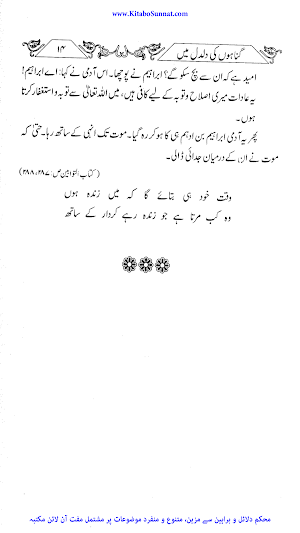 www.KitaboSunnat.com
گناہوں کی دلدل میں
۱۴
امید ہے کہ ان سے بچ سکو گے؟ ابراہیم نے پوچھا۔ اس آدمی نے کہا: اے ابراہیم!
یہ عادات میری اصلاح و توبہ کے لیے کافی ہیں، میں اللہ تعالیٰ سے توبہ و استغفار کرتا
ہوں۔
پھر یہ آدمی ابراہیم بن ادہم ہی کا ہو کر رہ گیا۔ موت تک انہی کے ساتھ رہا۔ حتی کہ
موت نے ان کے درمیان جدائی ڈالی۔
(کتاب التوابین ص: ۲۸۷، ۲۸۸)
وقت خود ہی بتائے گا کہ میں زندہ ہوں
وہ کب مرتا ہے جو زندہ رہے کردار کے ساتھ
محکم دلائل و براہین سے مزین، متنوع و منفرد موضوعات پر مشتمل مفت آن لائن مکتبہ